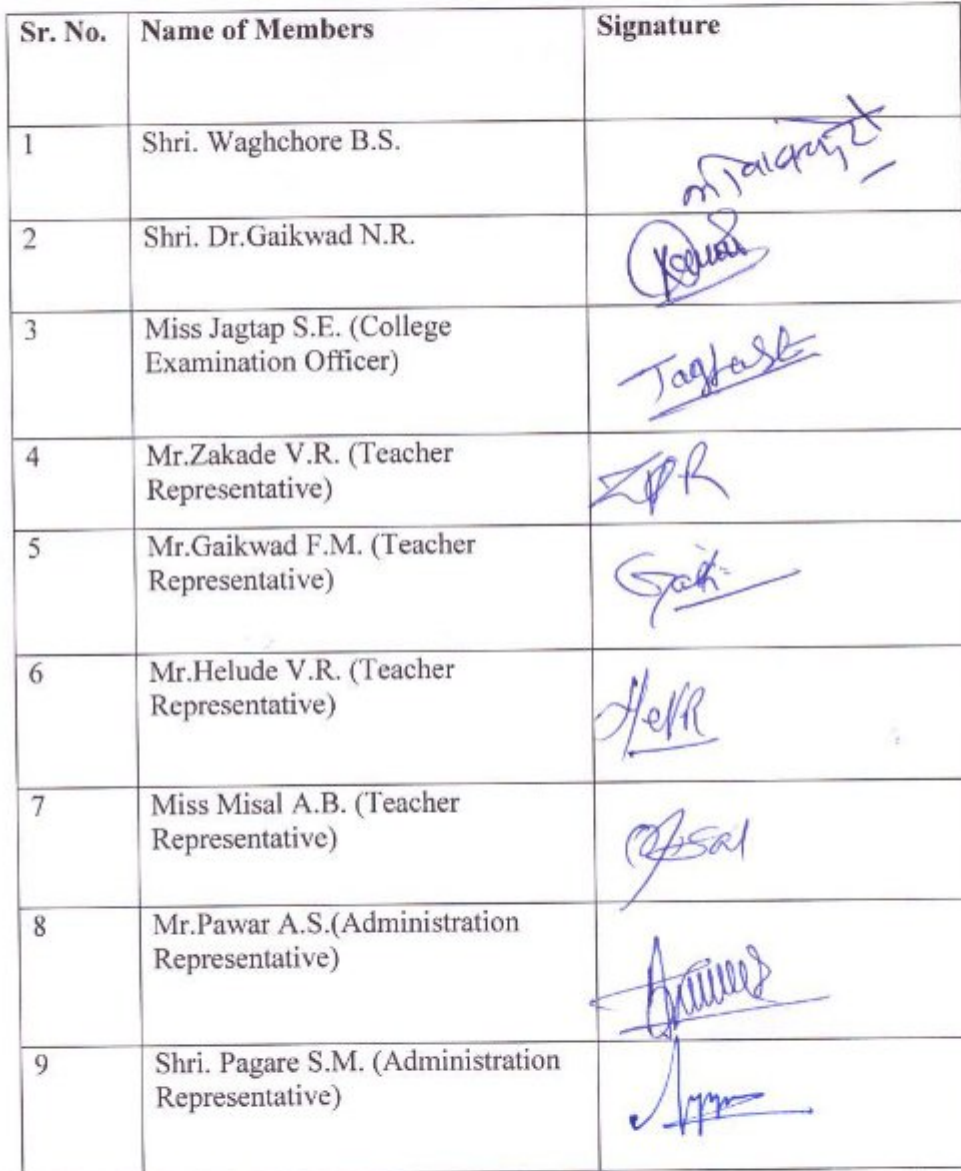 Sr. No. Name of Members Signature
1 Shri. Waghchore B.S.
2 Shri. Dr.Gaikwad N.R.
3 Miss Jagtap S.E. (College
Examination Officer)
4 Mr.Zakade V.R. (Teacher
Representative)
5 Mr.Gaikwad F.M. (Teacher
Representative)
6 Mr.Helude V.R. (Teacher
Representative)
7 Miss Misal A.B. (Teacher
Representative)
8 Mr.Pawar A.S.(Administration
Representative)
9 Shri. Pagare S.M. (Administration
Representative)